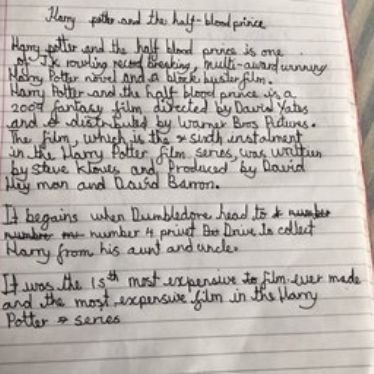 Harry potter and the half-blood prince
Harry potter and the half blood prince is one
of J.k rowling record breaking, multi-award winning
Harry Potter novel and a block buster film.
Harry Potter and the half blood prince is a
2009 fantasy film directed by David Yates
and distributed by Warner Bros Pictures.
The film, which is the sixth instalment
in the Harry Potter film series, was written
by steve kloves and Produced by David
Hey man and David Barron.
It begains when Dumbledore head to number
number number 4 privet Drive to collect
Harry from his aunt and uncle.
It was the 15th most expensive film ever made
and the most expensive film in the Harry
Potter series